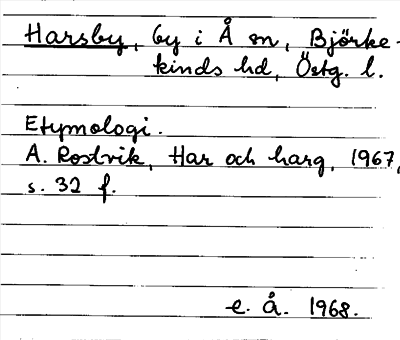 Harsby, by i Å sn, Björke-
kinds hd, Östg. l.
Etymologi.
A. Rostvik, Har och harg, 1967,
s. 32 f.
e. å. 1968.